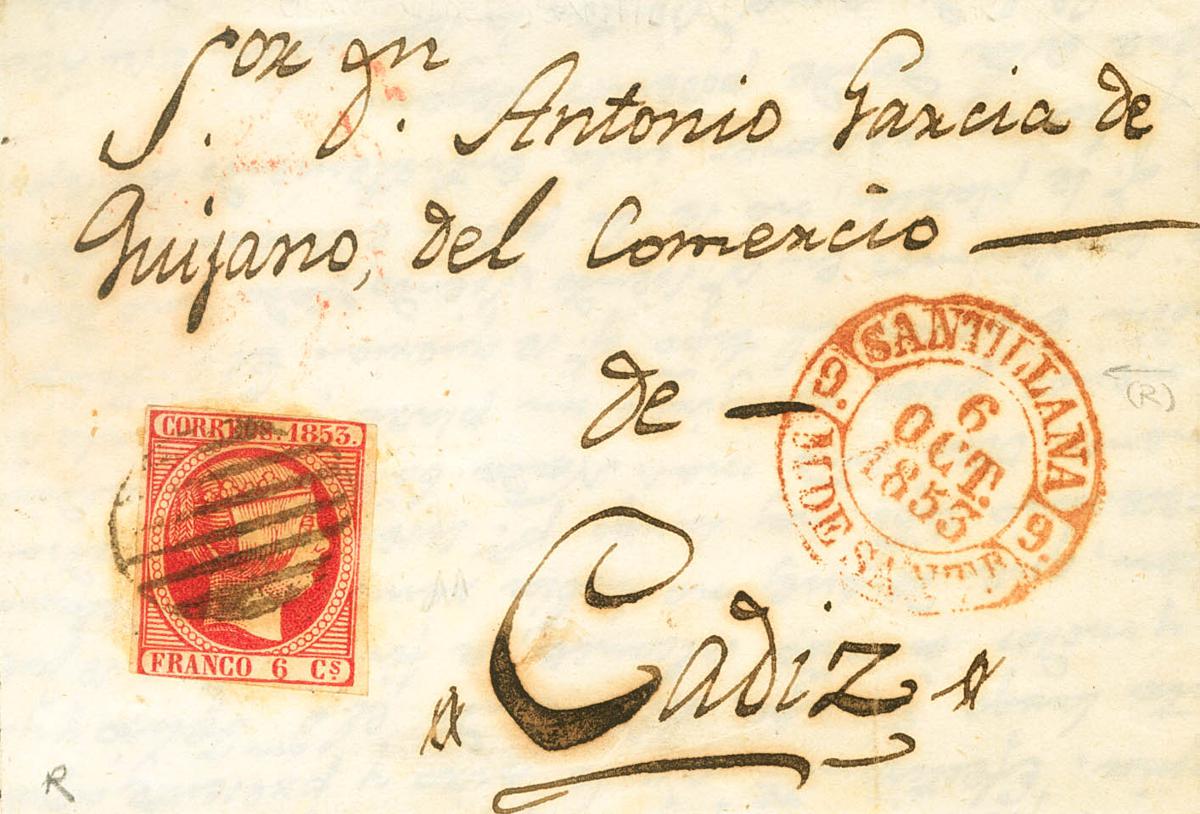 S.or dn. Antonio Garcia de
Quijano, del Comercio
de
Cadiz
CORREOS. 1853.
FRANCO 6 Cs
SANTILLANA
6
OCT.
1853
9.
9.
(R)
11
R